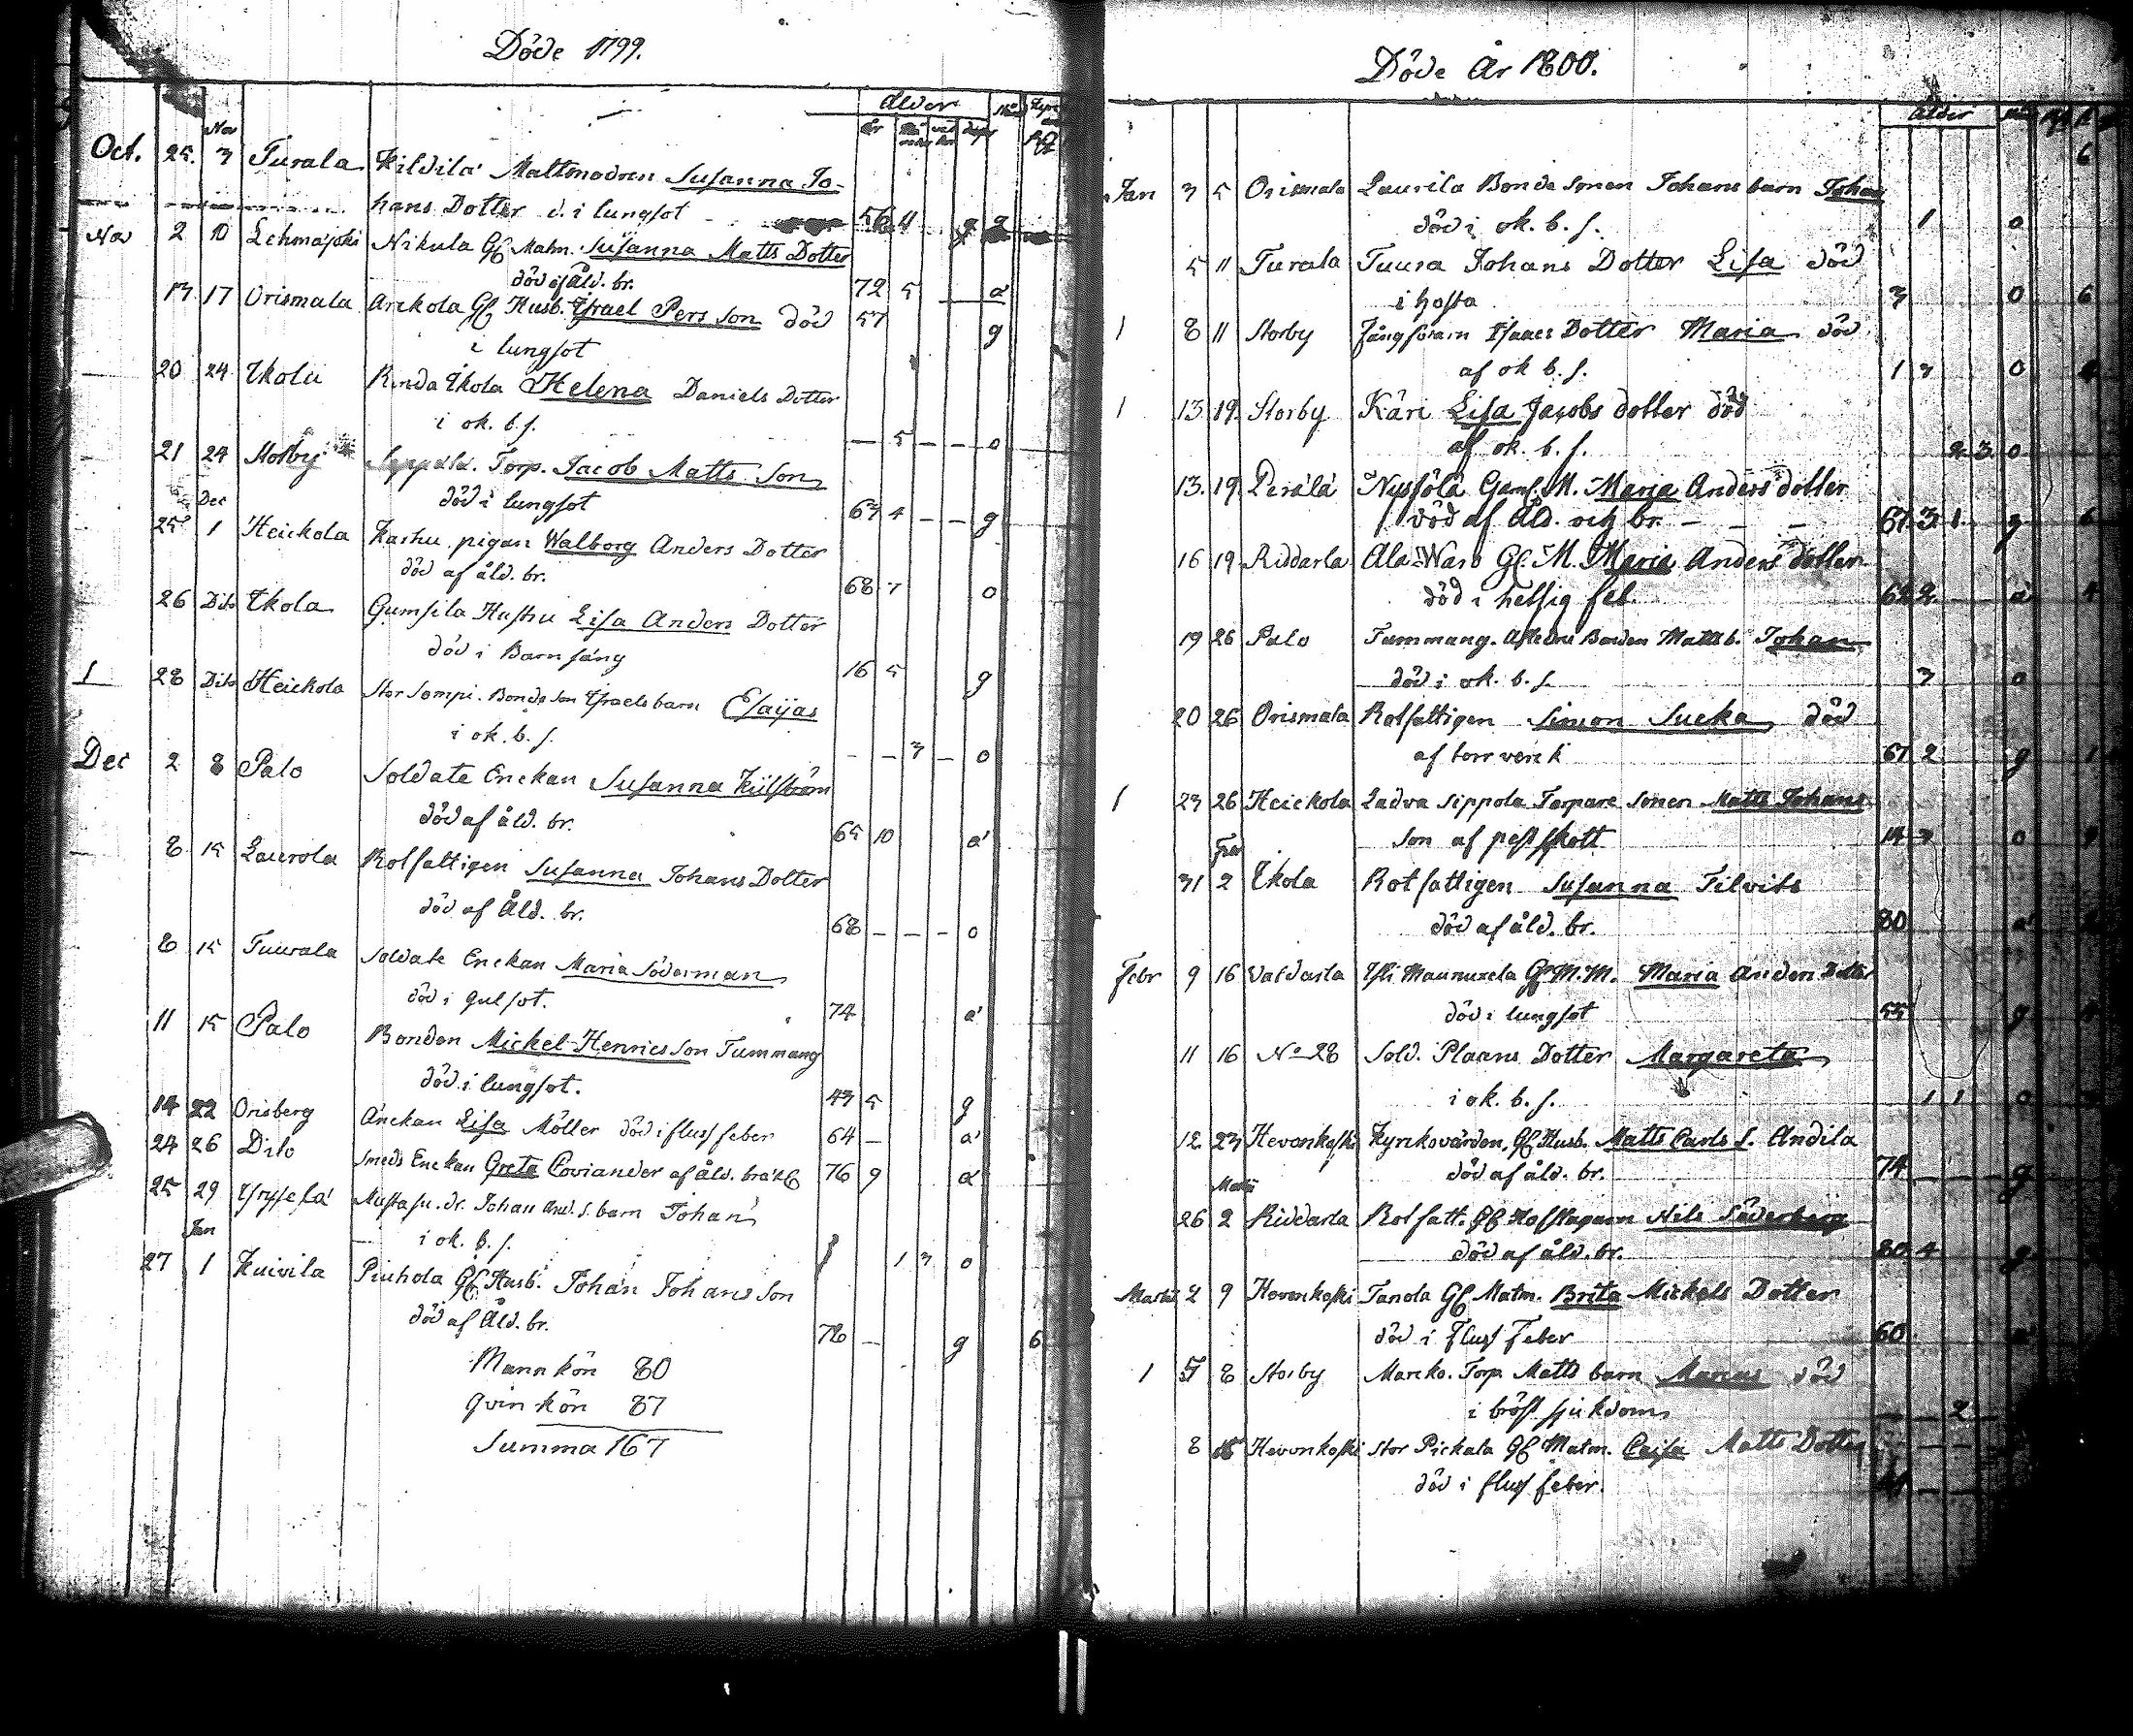 Döde 1799.
Ålder
År
Nov
Oct. 25. 3 Turala Kildilä Matmodren Susanna Jo-
hans Dotter d. i lungsot 56 11 g
Nov 2 10 Lehmäjoki Nikula Gl Matm. Susanna Matts Dotter
död af Åld. br. 72 5 a
13 17 Orismala Anckola Gl Husb. Israel Pers Son död 57 g
i lungsot
20 24 Ikola Renda Ikola Helena Daniels Dotter
i ok. b. s. — 5 — — o
21 24 Storby Torp. Jacob Matts Son
död i lungsot 67 4 — — g
Dec
25 1 Heickola Kashu pigan Walborg Anders Dotter
död af åld. br. 68 7 o
26 Dito Ikola Gumsila Hustru Lisa Anders Dotter
död i Barnsäng 16 5 g
1 28 Dito Heickola Stor Sompi. Bonde Son Israels barn Esaijas
i ok. b. s. — — 3 — o
Dec 2 8 Palo Soldate Enckan Susanna
död af åld. br. 65 10 a
8 15 Laurola Rotfattigen Susanna Johans Dotter
död af Åld. br. 68 — — — o
8 15 Tuurala Soldate Enckan Maria Söderman
död i gulsot. 74 a
11 15 Palo Bonden Mickel Henrics Son Tummang
död i lungsot. 43 5 g
14 22 Orisberg Änckan Lisa Möller död i fluss feber 64 — a
24 26 Dito Smeds Enckan Greta Coviander af åld. bräkl 76 9 a
25 29 Johan And. S. barn Johan
i ok. b. s. 1 3 o
Jan
27 1 Kuivila Piuhola Gl Husb. Johan Johans Son
död af Åld. br. 78 — g 6
Mannkön 80
Qvinkön 87
Summa 167
Döde År 1800.
Ålder
6
Jan 3 5 Orismala Laurila Bonde Sonen Johans barn Johan
död i ok. b. s. 1 o
5 11 Turala Tuura Johans Dotter Lisa död
i hosta 3 o 6
1 8 11 Storby Isaacs Dotter Maria död
af ok b. s. 1 3 o
1 13. 19. Storby Käri Lisa Jacobs dotter död
af ok. b. s. 2 3 o
13. 19. Perälä Gaml. M. Maria Anders dotter
död af Åld. och br. — — — 67. 3 1. g 6
16 19 Riddarla Ala Waro Gl. M. Maria Anders dotter
död i hetsig feb. 62 2 a 4
19 26 Palo Tummang. Bonden Matts b. Johan
död i ok. b. s. 3 o
20 26 Orismala Rotfattigen Simon Sucka död
af torr verck 67 2 g 1
1 23 26 Heickola Ladva Sippola Torpare Sonen Matts Johans
Son af 14 3 o
Febr
31 2 Ikola Rotfattigen Susanna Filvits
död af åld. br. 80 a
Febr 9 16 Valdarla Ylli Maunuxela Gl M.M. Maria Anders Dotter
död i lungsot 55 g
11 16 No 28 Sold. Plaans Dotter Margareta
i ok. b. s. 1 1 o
12 23 Hevonkoski Kyrckovärden, Gl Husb. Matts Carls S. Andila
död af åld. br. 74 g
Martii
26 2 Riddarla Rotfatt. Gl Nils Söderberg
död af åld. br. 80 4 g
Martii 2 9 Hevonkoski Tanola Gl Matm. Brita Mickels Dotter
död i Fluss Feber 60 a
1 5 8 Storby Marcko. Torp Matts barn Marcus död
i bröst sjukdom — — 2 —
8 Hevonkoski Stor Pickala Gl Matm. Caisa Matts Dotter
död i fluss feber.